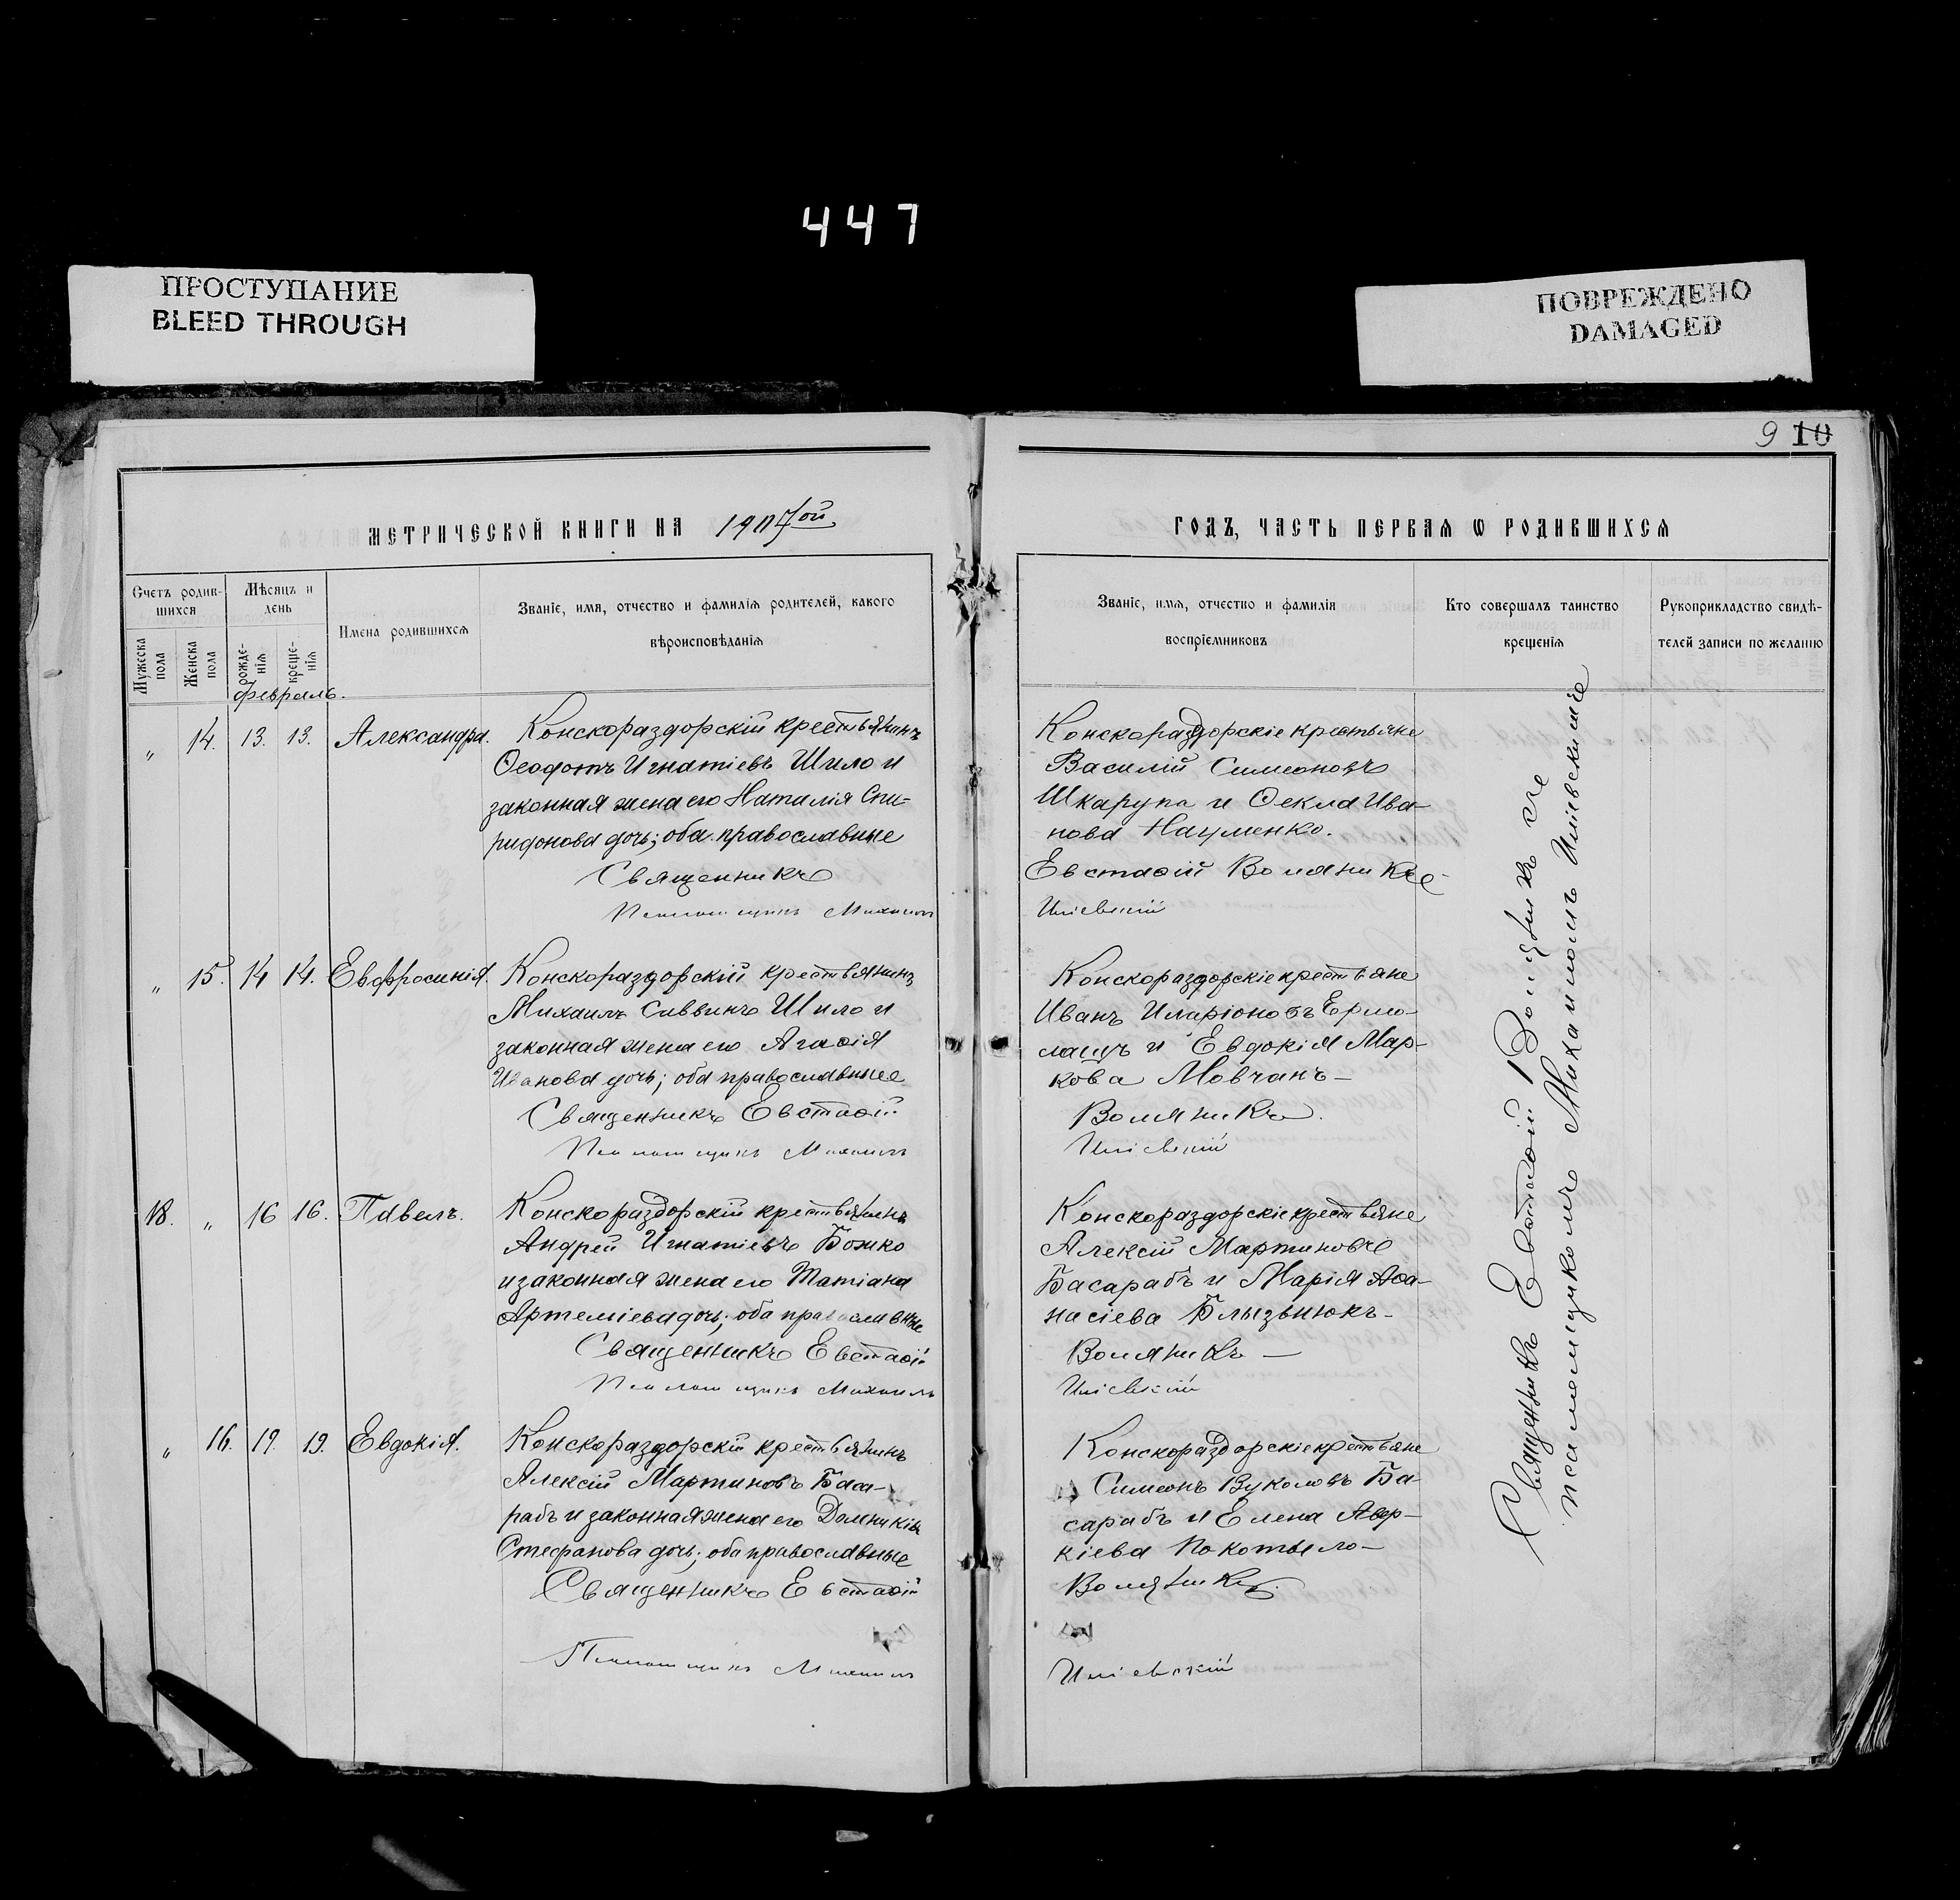 447
ПРОСТУПАНИЕ
BLEED THROUGH
ПОВРЕЖДЕНО
DAMAGED
9 10
МЕТРИЧЕСКОЙ КНИГИ НА 1907ой
ГОДЪ, ЧАСТЬ ПЕРВАЯ Ѡ РОДИВШИХСЯ
Счетъ родив-
шихся
Мужеска пола
Женска пола
Мѣсяцъ и
день
рожде-
нія
креще-
нія
Имена родившихся
Званіе, имя, отчество и фамилія родителей, какого
вѣроисповѣданія
Званіе, имя, отчество и фамилія
воспріемниковъ
Кто совершалъ таинство
крещенія
Рукоприкладство свидѣ-
телей записи по желанію
Февраль.
„ 14. 13. 13. Александра.
Конскораздорскій крестьянинъ
Ѳеодотъ Игнатіевъ Шило и
законная жена его Наталія Спи-
ридонова дочь; оба православные
Священникъ
Псаломщикъ Михаилъ
Конскораздорскіе крестьяне
Василій Симеоновъ
Шкарупа и Ѳекла Ива-
нова Науменко.
Евстаѳій Воляникъ
„ 15. 14 14. Евфросинія.
Конскораздорскій крестьянинъ
Михаилъ Саввинъ Шило и
законная жена его Агаѳія
Иванова дочь; оба православные
Священникъ Евстаѳій
Псаломщикъ Михаилъ
Конскораздорскіе крестьяне
Иванъ Иларіоновъ Ермо-
лащъ и Евдокія Мар-
кова Мовчанъ-
Воляникъ.
18. „ 16 16. Павелъ.
Конскораздорскій крестьянинъ
Андрей Игнатіевъ Божко
и законная жена его Татіана
Артеміева дочь; оба православные
Священникъ Евстаѳій
Псаломщикъ Михаилъ
Конскораздорскіе крестьяне
Алексій Мартиновъ
Басарабъ и Марія Аѳа-
насіева Блызьнюкъ-
Воляникъ —
„ 16. 19. 19. Евдокія.
Конскораздорскій крестьянинъ
Алексій Мартиновъ Баса-
рабъ и законная жена его Домникія
Стефанова дочь; оба православные
Священникъ Евстаѳій
Псаломщикъ Михаилъ
Конскораздорскіе крестьяне
Симеонъ Вуколовъ Ба-
сарабъ и Елена Авер-
кіева Покотыло-
Воляникъ.
Священникъ Евстаѳій Воляникъ съ
псаломщикомъ Михаиломъ